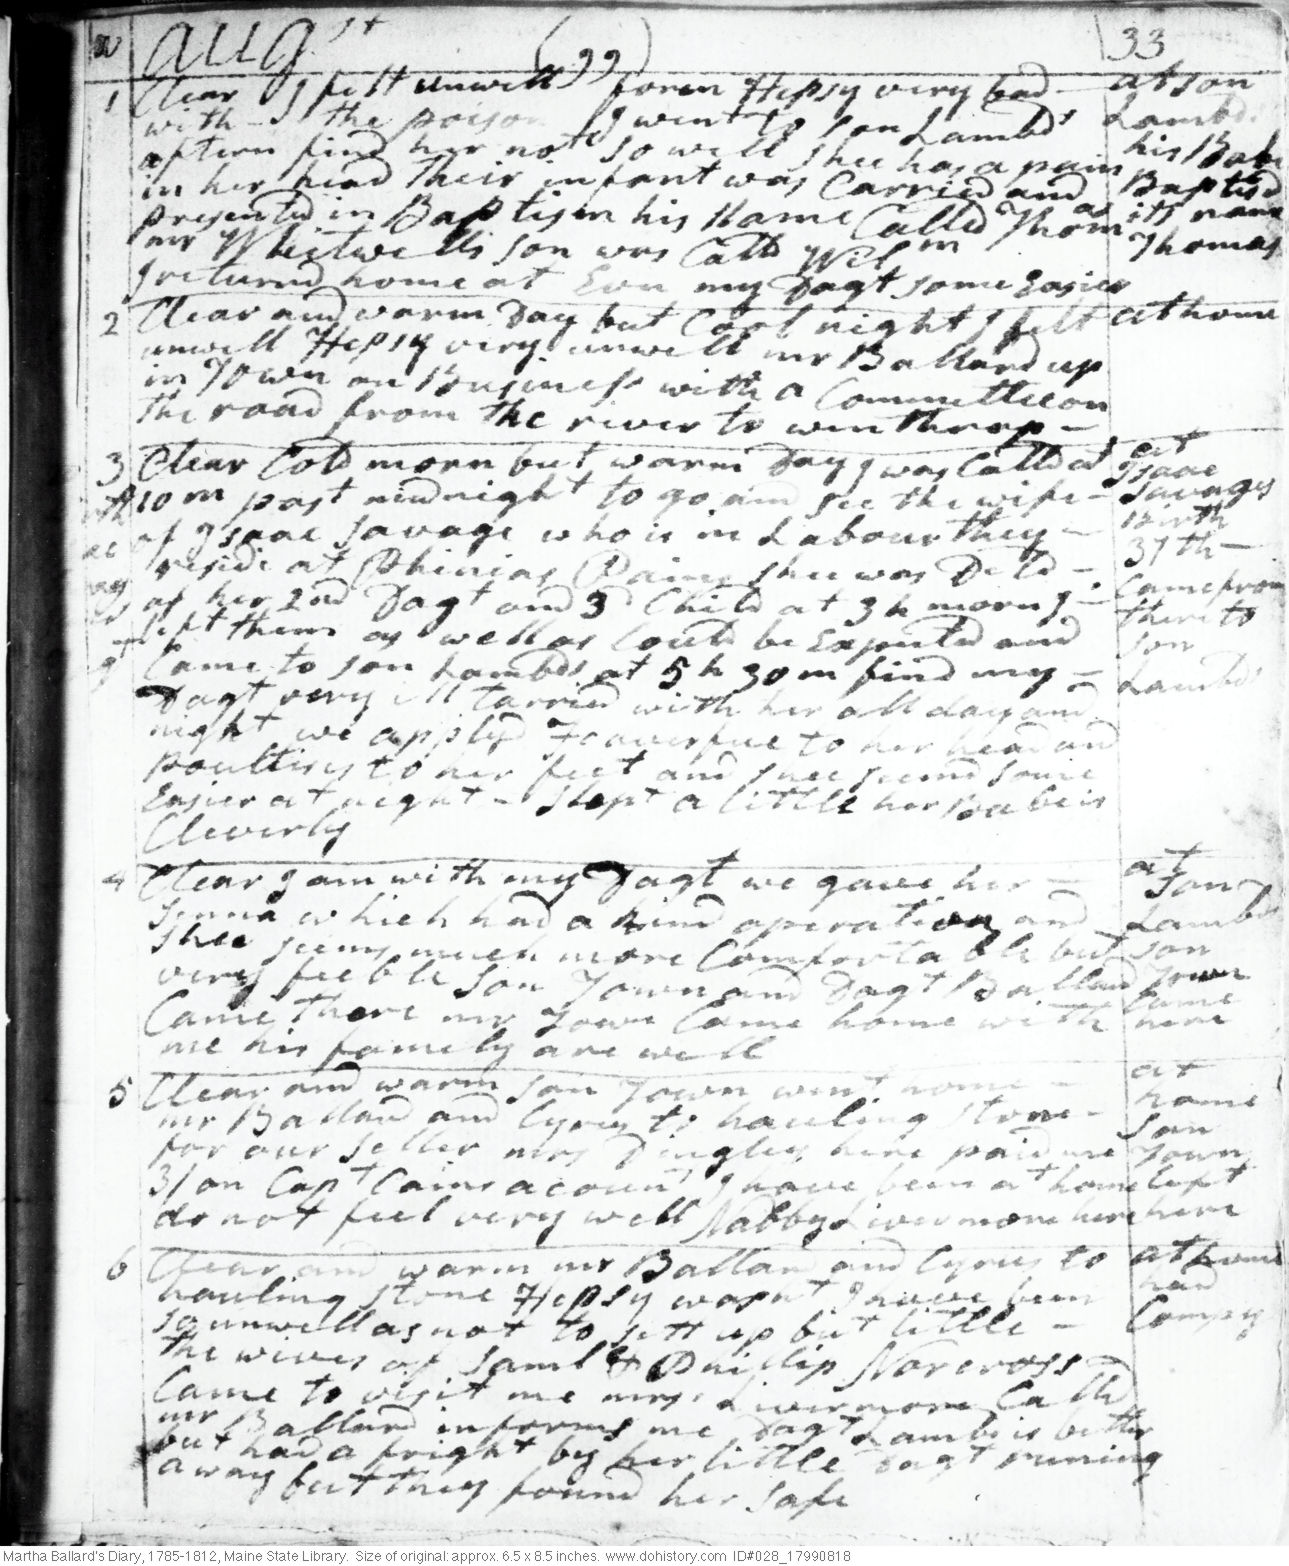 Augst (99) 33
1 Clear I felt unwell foren Hepsy very bad
with the poison I went to son Lambds
aftern find her not so well shee has a pain
in her head their infant was Carried and
presented in Baptism his Name Calld Thomas
mr Whitwells son was Calld Wilm
I returnd home at Evn my Dagt some Easier
at son
Lambds
his Babe
Baptisd
its name
Thomas
2 Clear and warm Day but Cool night I felt
unwell Hepsy very unwell mr Ballard up
in Town on Business with a Committee on
the road from the river to winthrop
at home
3 Clear Cold morn but warm Day I was Calld at
10 m past midnight to go and see the wife
of Isaac Savage who is in Labour they
reside at Phinias Pains shee was Deld
of her 2nd Dagt and 3d Child at 3 h morn I
left them as well as Could be Expected and
Came to son Lambds at 5 h 30 m find my
Dagt very ill tarried with her all day and
night we applyd to her head and
Poultises to her feet and shee seemd some
Easier at night - slept a little her Babe is
Cleverly
at
Isaac
Savages
Birth
37th
Came from
there to
son
Lambds
4 Clear I am with my Dagt we gave her
senna which had a kind operation and
shee seems much more Comfortable but
very feeble son Town and Dagt Ballard
Came there mr Town Came home with
me his famely are well
at
son
Lambds
son
Town
Came
here
5 Clear and warm son Town went home
mr Ballard and Cyrus to hauling stone
for our seller mrs Dingley here paid me
3/ on Capt Cains acount I have been at home
do not feel very well Nabby Livermore here
at
home
son
Town
left
here
6 Clear and warm mr Ballard and Cyrus to
hauling stone Hepsy washt I have been
so unwell as not to sett up but little
the wives of Saml & Phillip Norcross
Came to visit me mrs Livermore Calld
mr Ballard informs me Dagt Lambd is better
but had a fright by her little Dagt runing
away but they found her safe
at home
had
Compy
Martha Ballard's Diary, 1785-1812, Maine State Library. Size of original: approx. 6.5 x 8.5 inches. www.dohistory.com ID#028_17990818